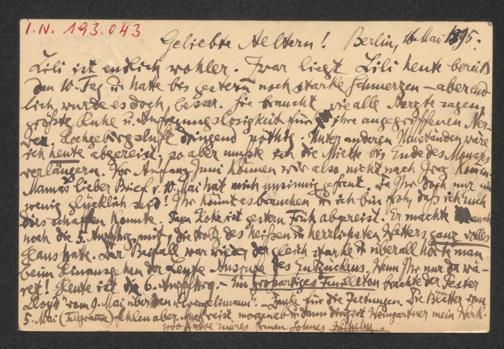 I.N. 193.043
Geliebte Aeltern! Berlin, Mai 1895.
Lili ist endlich wohler. Zwar liegt Lili heute bereits
den 10. Tag u. hatte bis gestern noch starke Schmerzen – aber end
lich wurde es doch besser. Sie braucht, wie alle Aerzte sagen,
größte Ruhe u. für ihre angegriffenen Ner-
ven. Hochgebirgsluft dringend nöthig. Unter anderen Umständen wäre
ich heute abgereist, so aber mußte ich die Miethe bis Ende des Monats
verlängern. Vor Anfang Juni können wir also nicht nach Graz kommen
Mamas lieber Brief v. 10. Mai hat mich unsinnig gefreut. Daß Ihr doch nur ein
wenig glücklich seid! Ihr könnt es brauchen u. ich bin froh, daß ich Euch
dies schaffen konnte. Papa ist gestern Früh abgereist. Er machte
noch die 5. Aufführg. mit, die trotz des heißen u. herrlichsten Wetters ganz volles
Haus hatte. Der Beifall war wieder der gleich starke u. überall hörte man
beim Hinausgehen der Leute Ausrufe des Entzückens. Wenn Ihr nur da wä-
ret! Heute ist die 6. Aufführg. – Ein großartiges Feuilleton brachte der Pester
Lloyd vom 9. Mai über den "Evangelimann". – Danke für die Zeitungen. Die Blätter vom
5. Mai fehlen aber. reist morgen ab u. dann dirigirt Weingartner mein Werk.
1000 Eures treuen Sohnes Wilhelm.